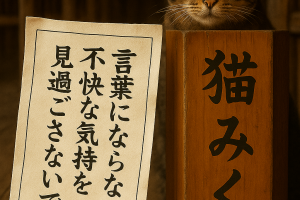 言葉にならな
不快な気持を
見過ごさないで
猫みく